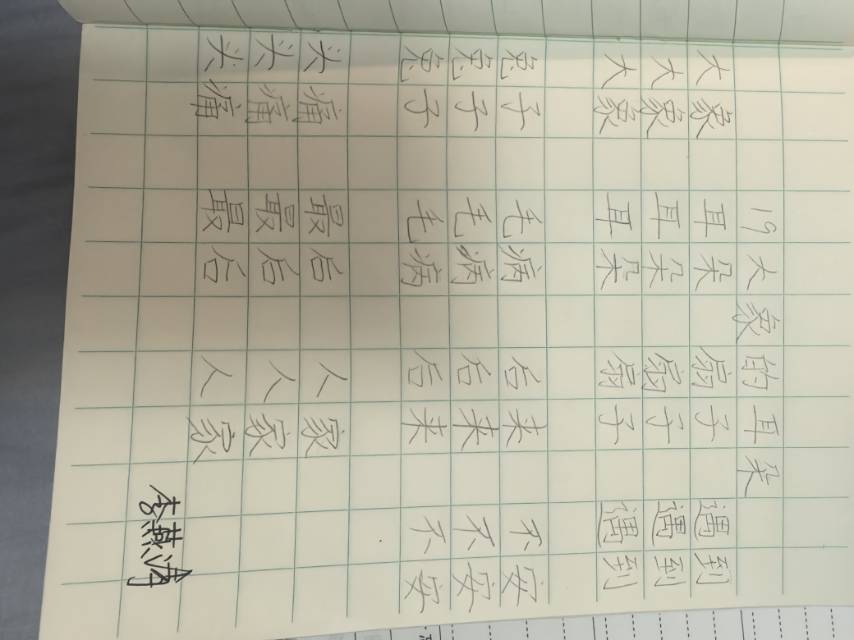 19 大象的耳朵
大象 耳朵 扇子 遇到
大象 耳朵 扇子 遇到
大象 耳朵 扇子 遇到
兔子 毛病 后来 不安
兔子 毛病 后来 不安
兔子 毛病 后来 不安
头痛 最后 人家
头痛 最后 人家
头痛 最后 人家